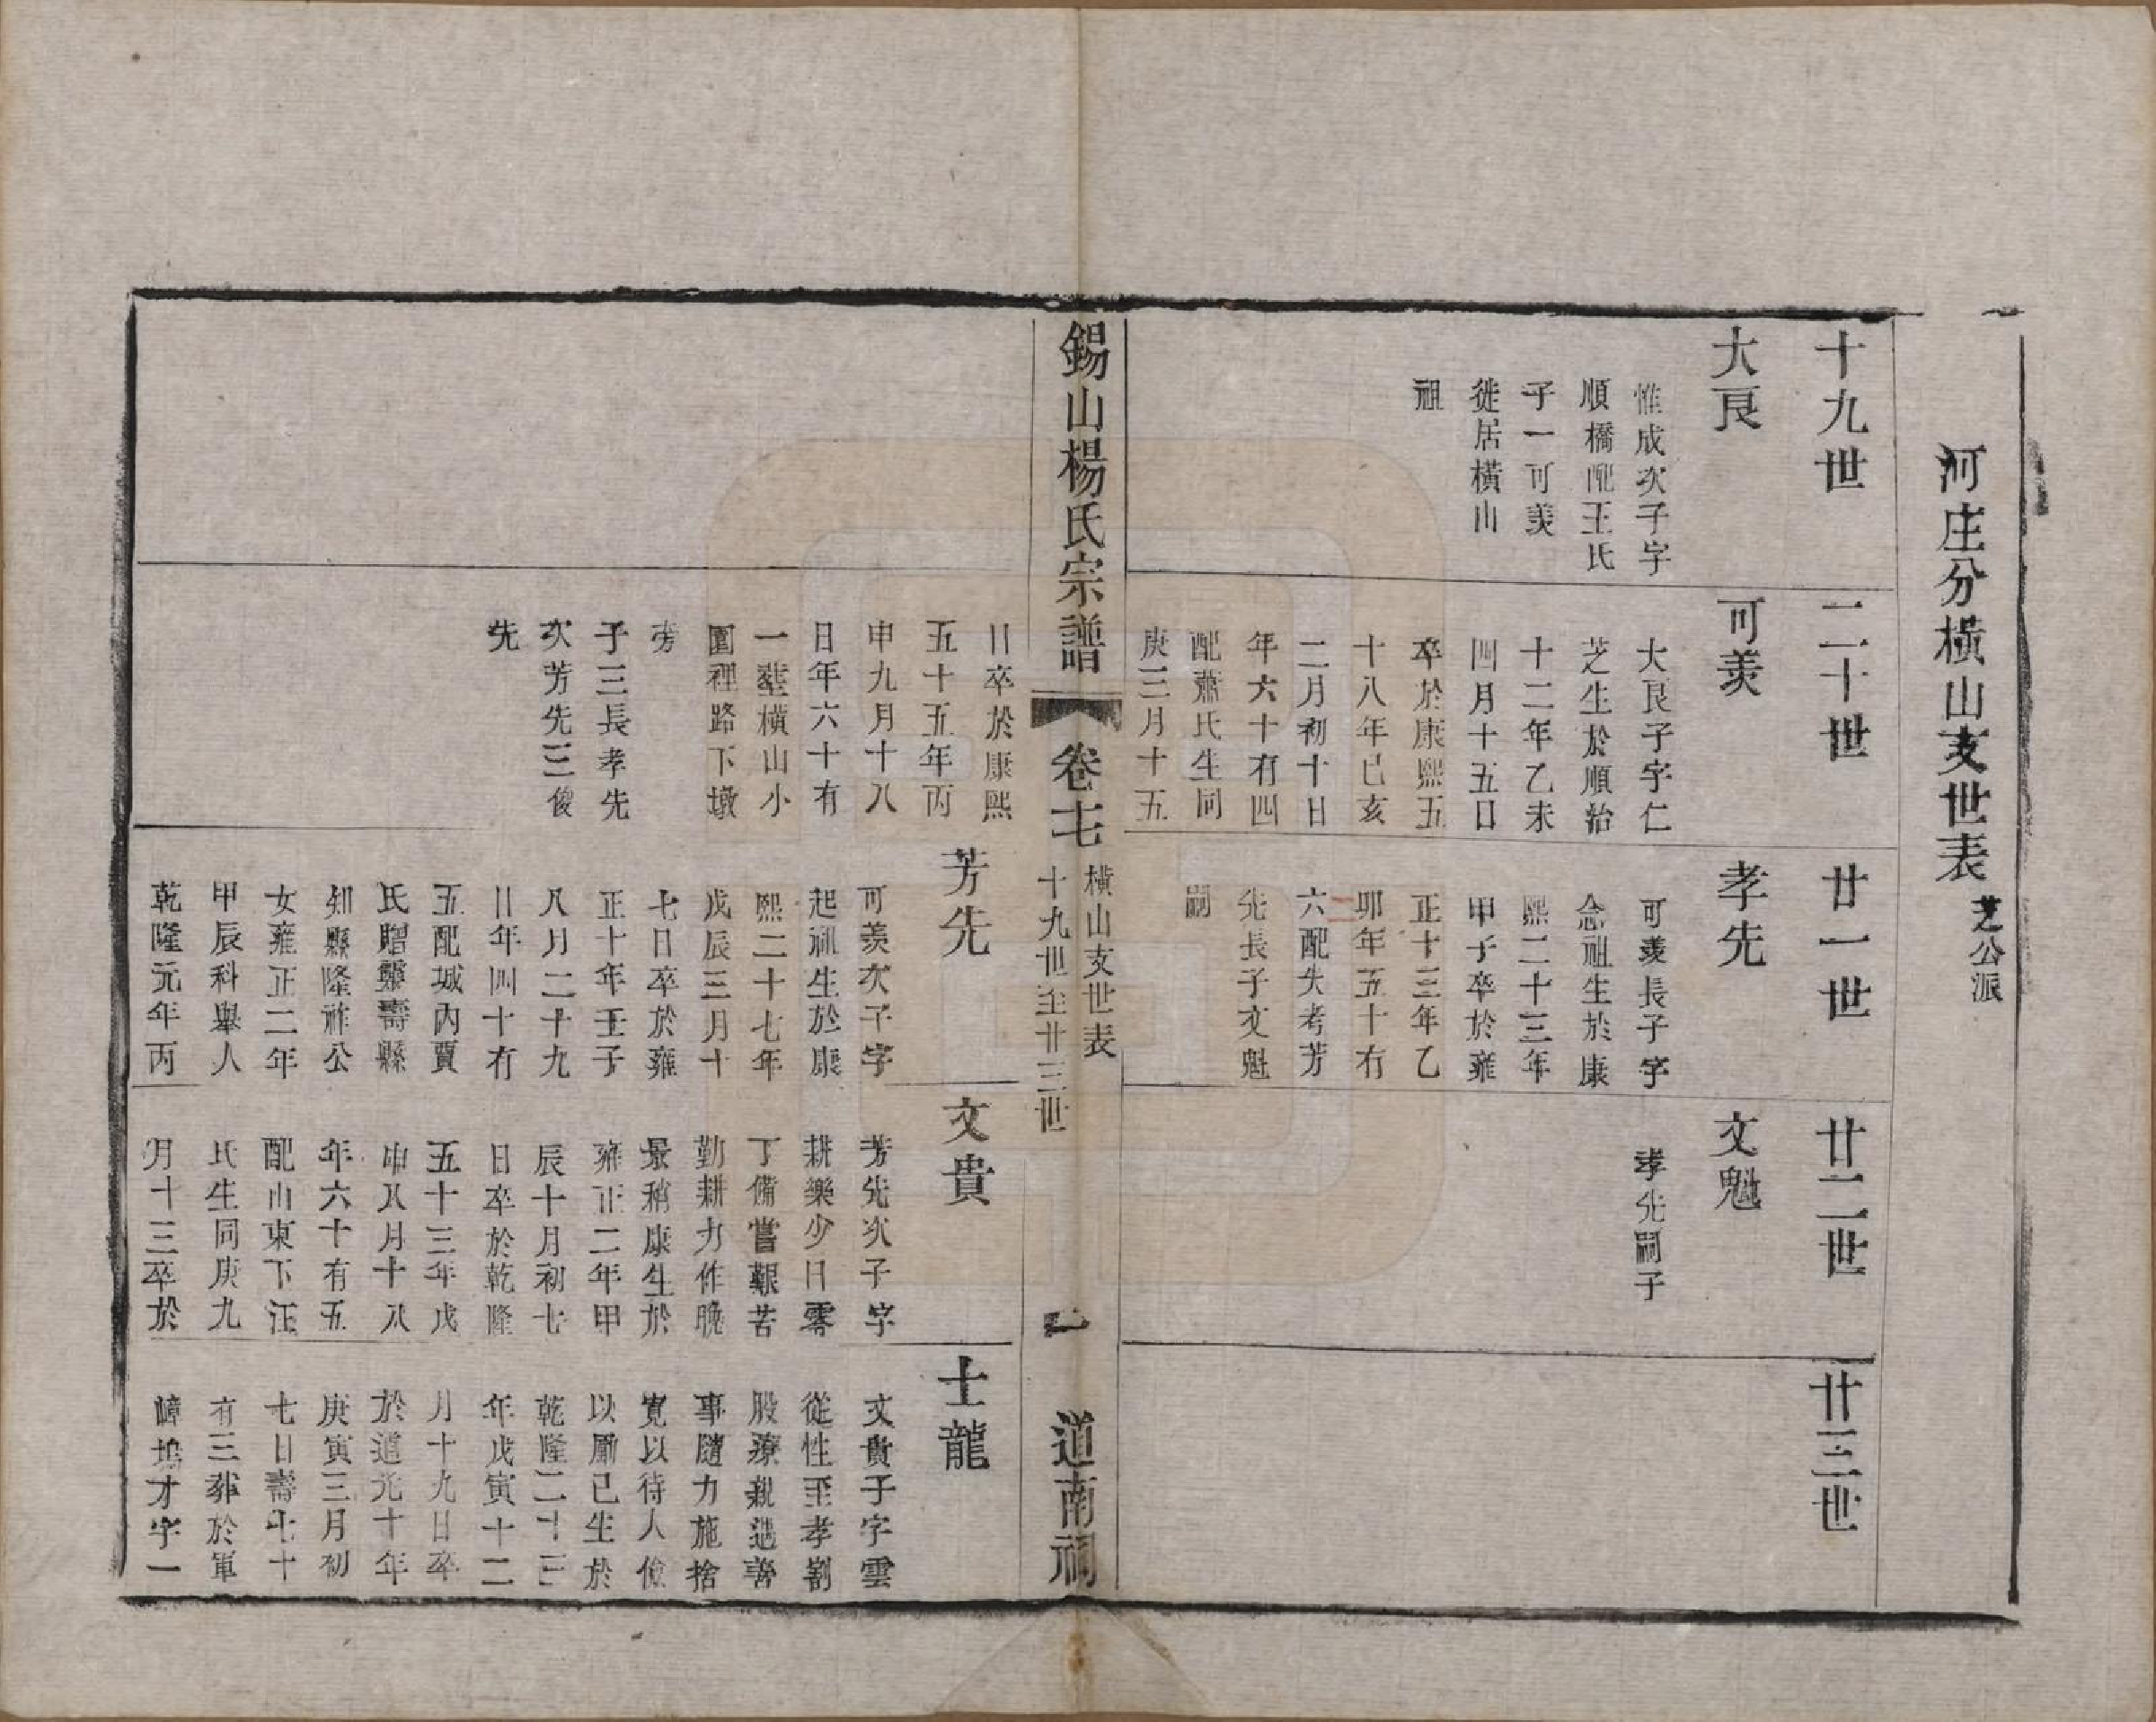 河庄分橫山支世表 芝公派
十九世
大艮
惟成次子字
順橋配王氏
子一可羙
徙居橫山
祖
二十世
可羙
大艮子字仁
芝生於順治
十二年乙未
四月十五日
卒於康熙五
十八年已亥
二月初十日
年六十有四
配蕭氏生同
庚三月十五
廿一世
孝先
可羙長子字
念祖生於康
熙二十三年
甲子卒於雍
正十三年乙
卯年五十有
六配失考芳
先長子文魁
嗣
廿二世
文魁
孝先嗣子
廿三世
錫山楊氏宗譜
卷七
橫山支世表
十九世至廿三世
一
道南祠
日卒於康熙
五十五年丙
申九月十八
日年六十有
一塟橫山小
園裡路下墩
旁
子三長孝先
次芳先三俊
先
芳先
可羙次子字
起祖生於康
熙二十七年
戊辰三月十
七日卒於雍
正十年壬子
八月二十九
日年四十有
五配城內賈
氏贈靈壽縣
知縣隆祚公
女雍正二年
甲辰科舉人
乾隆元年丙
文貴
芳先次子字
耕樂少日零
丁備嘗艱苦
勤耕力作晚
景稍康生於
雍正二年甲
辰十月初七
日卒於乾隆
五十三年戊
申八月十八
年六十有五
配山東下汪
氏生同庚九
月十三卒於
士龍
文貴子字雲
從性至孝割
股療親遇善
事隨力施捨
寬以待人儉
以勵已生於
乾隆二十三
年戊寅十二
月十九日卒
於道光十年
庚寅三月初
七日壽七十
有三葬於軍
嶂塢才字一